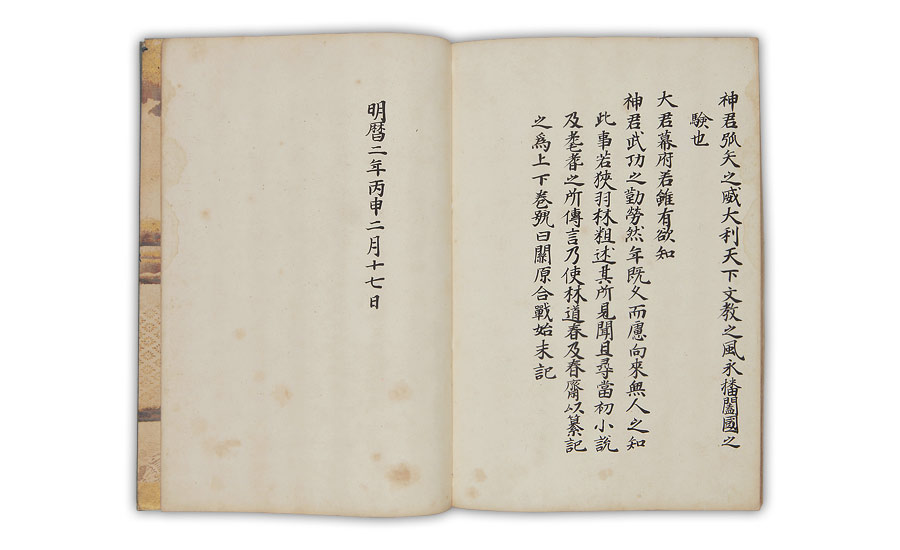 神君弧矢之威大利天下文教之風永播闔國之
験也
大君幕府若雖有欲知
神君武功之勤勞然年既久而慮向來無人之知
此事若狹羽林粗述其所見聞且尋當初小説
及耄耋之所傳言乃使林道春及春齋以纂記
之爲上下卷號曰關原合戰始末記
明暦二年丙申二月十七日